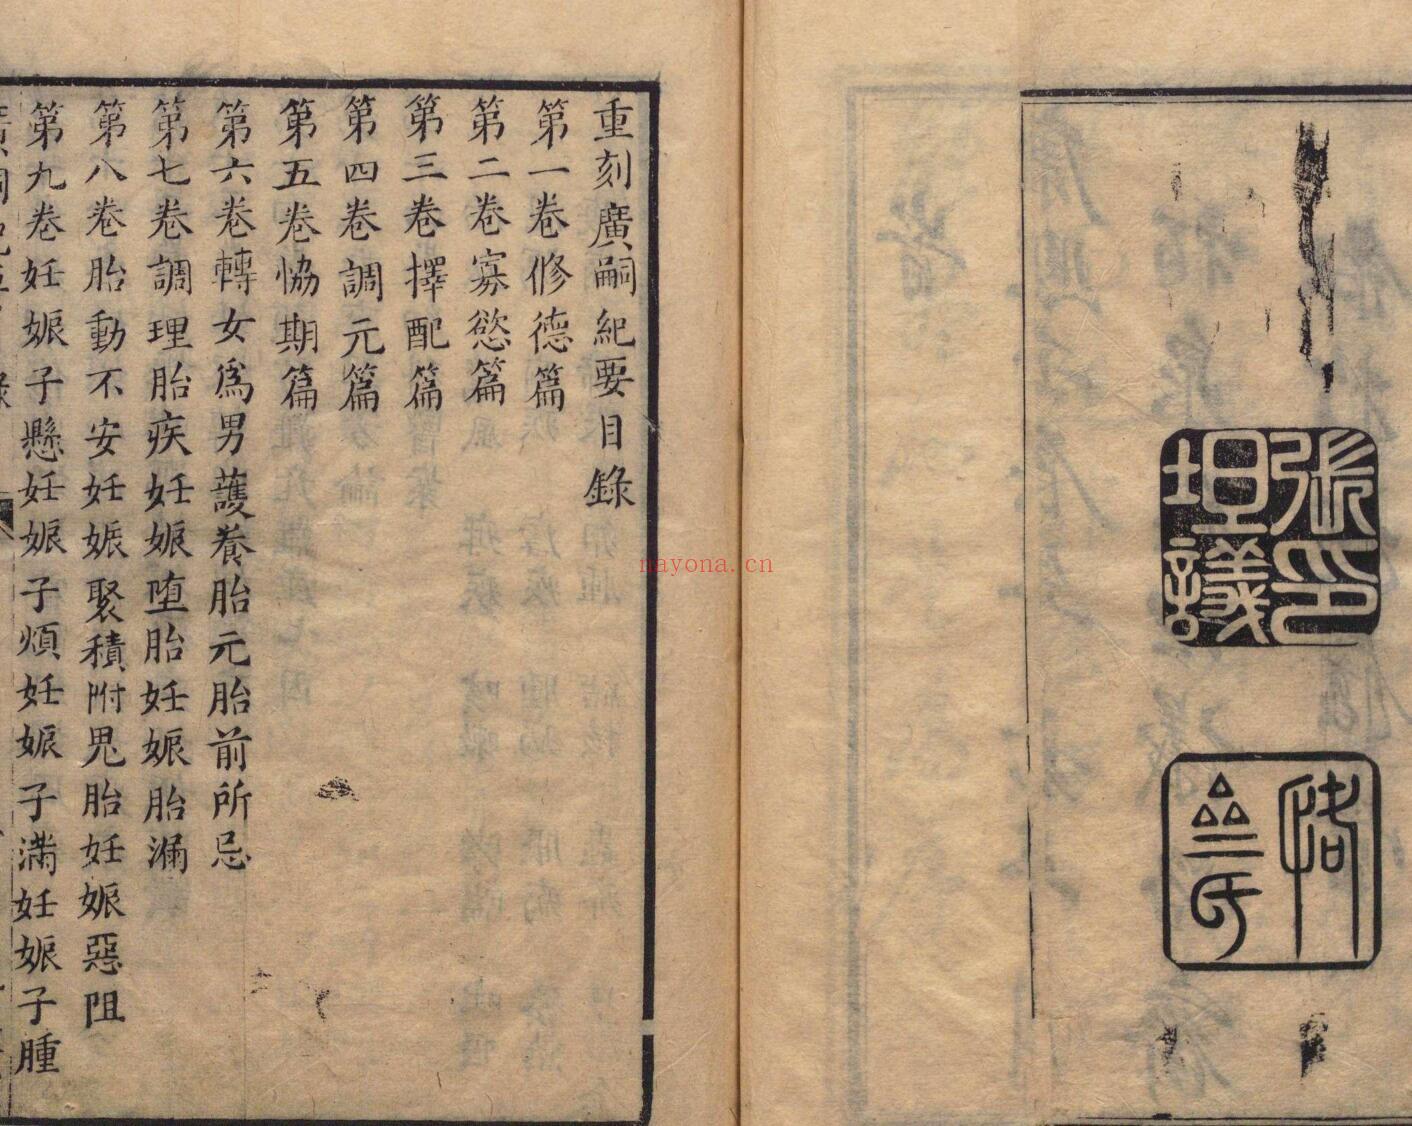 張坦議印
恪叄氏
重刻廣嗣紀要目錄
第一卷修德篇
第二卷寡慾篇
第三卷擇配篇
第四卷調元篇
第五卷恊期篇
第六卷轉女為男護養胎元胎前所忌
第七卷調理胎疾妊娠墮胎妊娠胎漏
第八卷胎動不安妊娠聚積附鬼胎妊娠惡阻
第九卷妊娠子懸妊娠子煩妊娠子滿妊娠子腫
nayona.cn